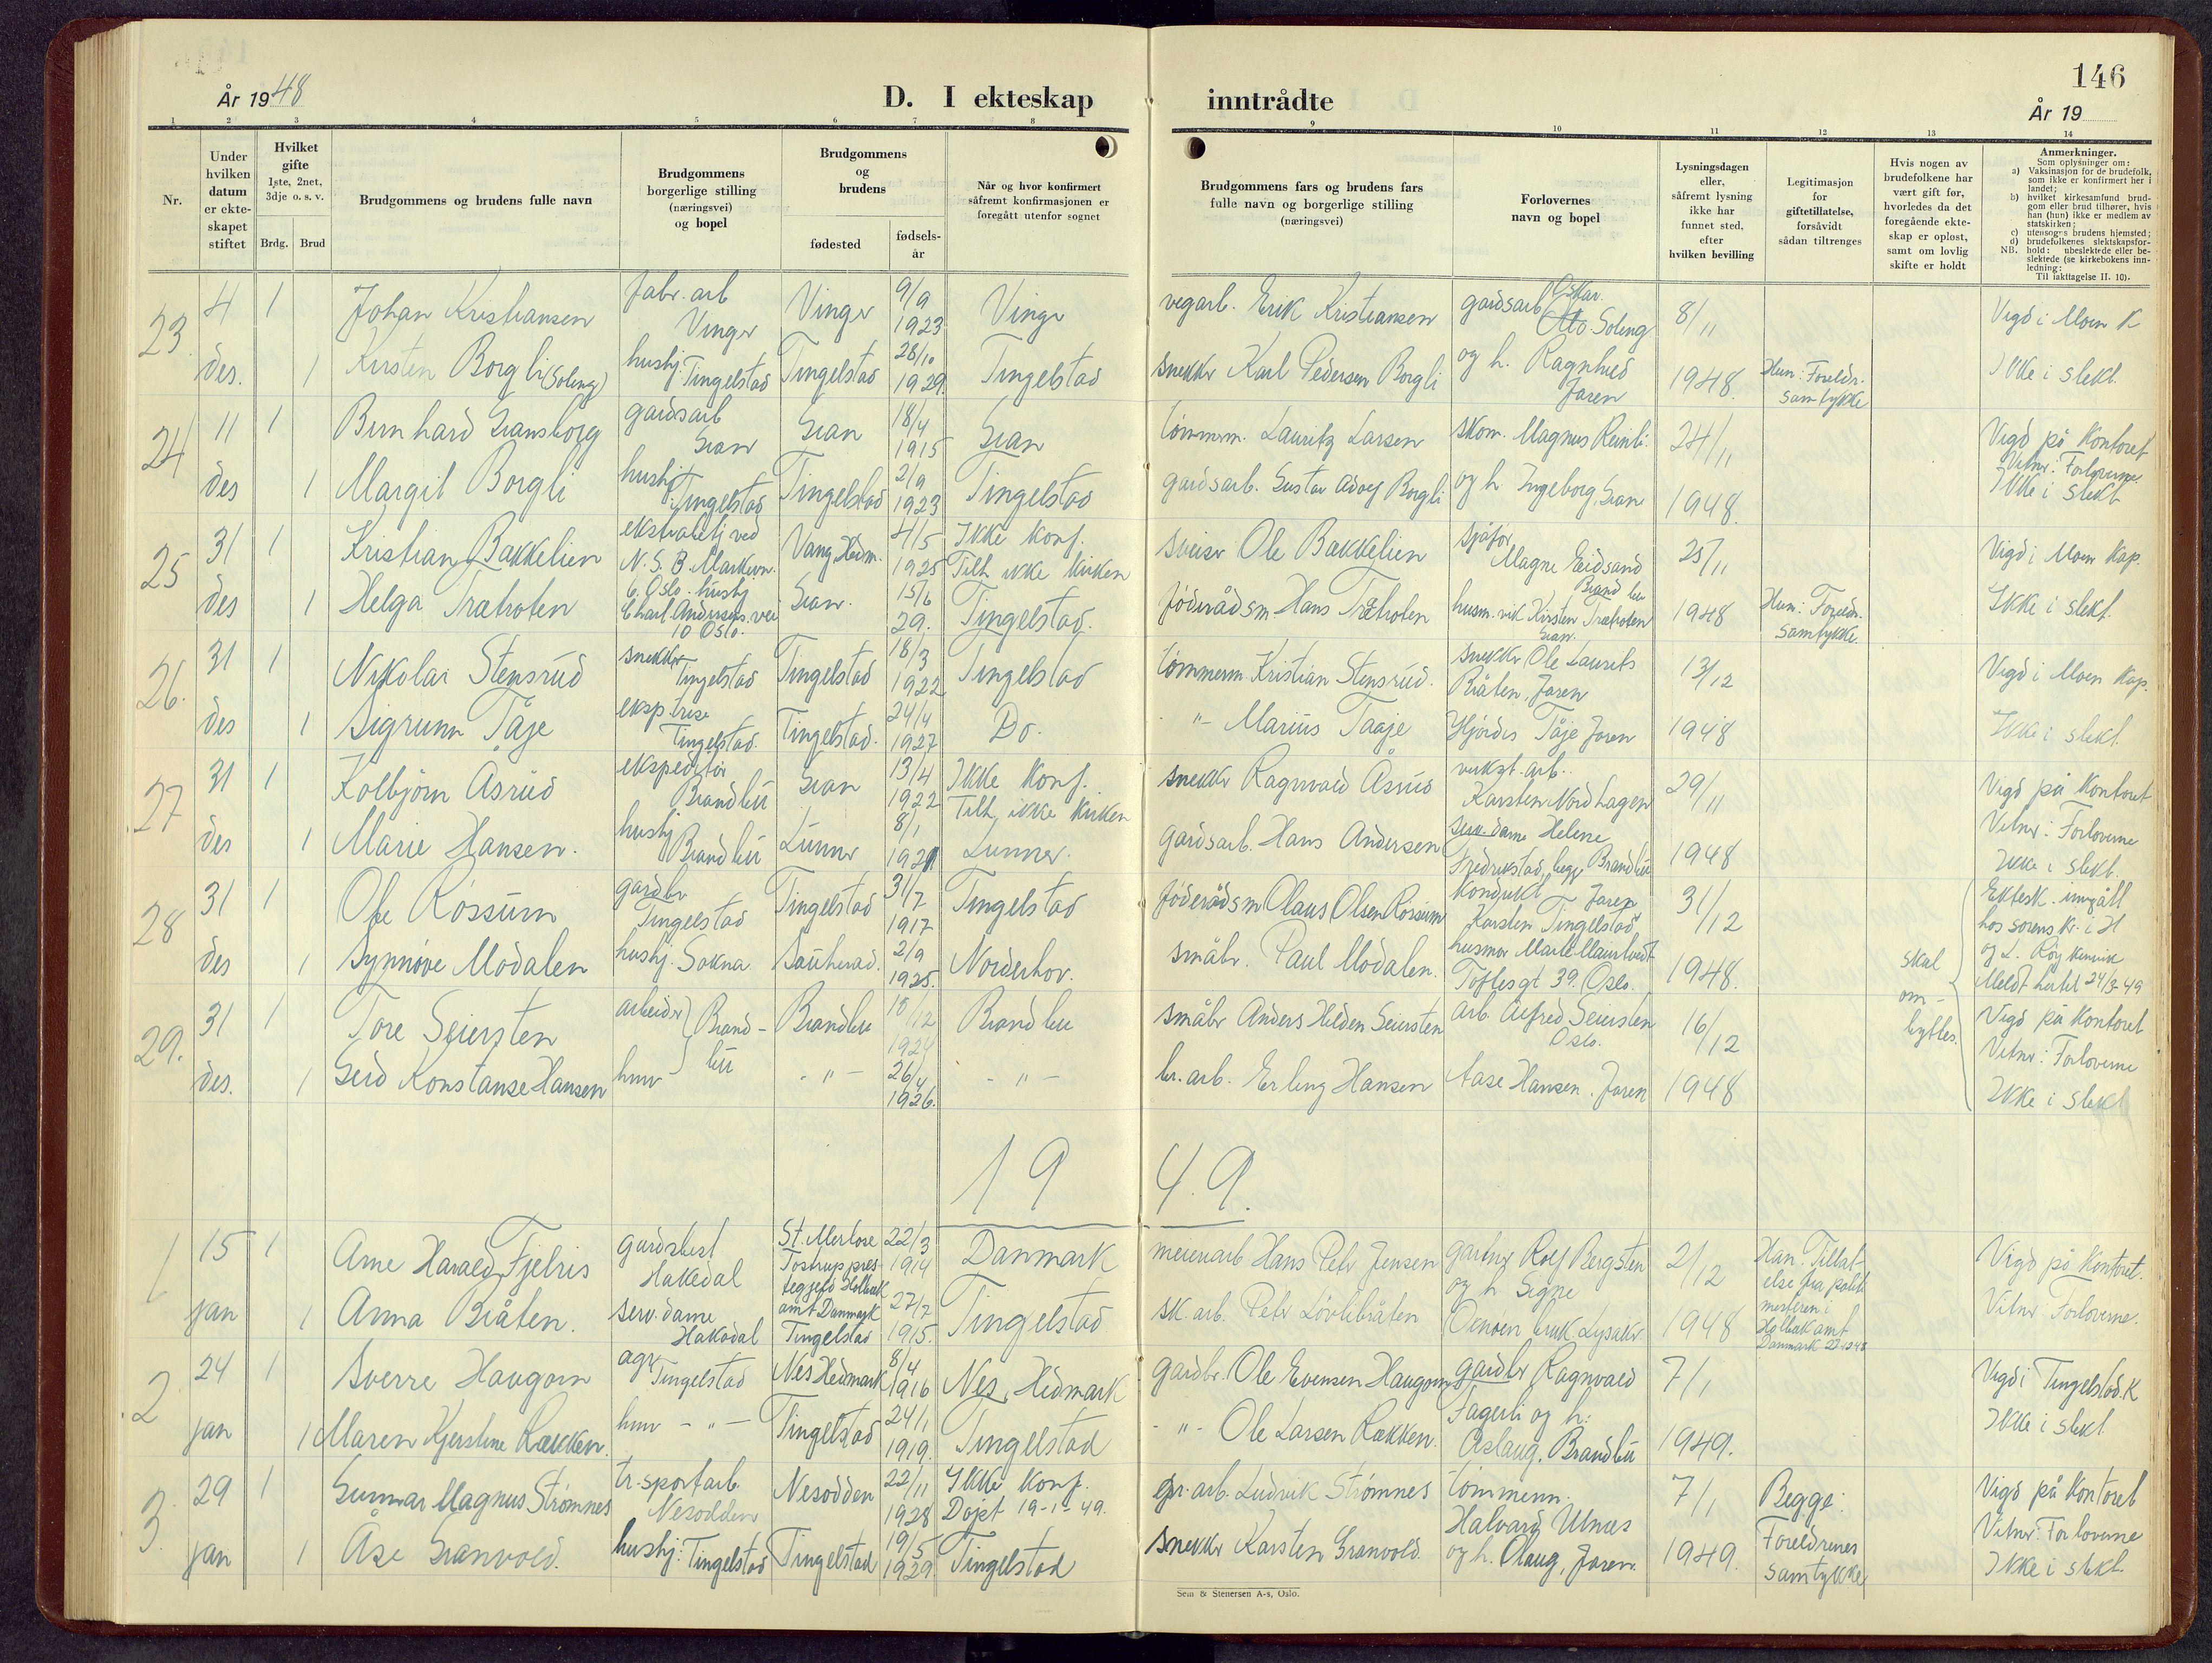 146
År 1948
D. I ekteskap inntrådte
År 19
1 2 3 4 5 6 7 8 9 10 11 12 13 14
Nr.
Under hvilken datum er ekteskapet stiftet
Hvilket gifte 1ste, 2net, 3dje o. s. v.
Brdg. Brud
Brudgommens og brudens fulle navn
Brudgommens borgerlige stilling (næringsvei) og bopel
Brudgommens og brudens
fødested
fødsels-år
Når og hvor konfirmert såfremt konfirmasjonen er foregått utenfor sognet
Brudgommens fars og brudens fars fulle navn og borgerlige stilling (næringsvei)
Forlovernes navn og bopel
Lysningsdagen eller, såfremt lysning ikke har funnet sted, efter hvilken bevilling
Legitimasjon for giftetillatelse, forsåvidt sådan tiltrenges
Hvis nogen av brudefolkene har vært gift før, hvorledes da det foregående ekteskap er opløst, samt om lovlig skifte er holdt
Anmerkninger.
Som oplysninger om:
a) Vaksinasjon for de brudefolk, som ikke er konfirmert her i landet;
b) hvilket kirkesamfund brudgom eller brud tilhører, hvis han (hun) ikke er medlem av statskirken;
c) utensogns brudens hjemsted;
d) brudefolkenes slektskapsforhold: ubeslektede eller beslektede (se kirkebokens innledning:
NB. Til iakttagelse II. 10).
23 4 1 Johan Kristiansen fabr. arb Vinger Vinger 9/9 1923 Vinger vegarb. Erik Kristiansen gardsarb Oskar Soleng 8/11 Vigd i Moen K
des. 1 Kirsten Borgli (Soleng) hushj. Tingelstad Tingelstad 28/10 1929. Tingelstad snekker Karl Pedersen Borgli og h. Ragnhild Jaren 1948. Hun: Foreldr. samtykke Ikke i slekt.
24 11 1 Bernhard Gransborg gardsarb Gran Gran 18/4 1915 Gran tømmerm. Lauritz Larsen skom. Magnus Reinli 24/11 Vigd på Kontoret
des 1 Margit Borgli hushj. Tingelstad Tingelstad 2/9 1923 Tingelstad gardsarb. Gustav Adolf Borgli og h Ingeborg, Gran 1948. Vitner: Forloverne Ikke i slekt
25 31 1 Kristian Bakkelien ekstrabetj ved N. S. B. Vang Hedm. 4/5 1925 Ikke konf. Tilh. ikke kirken sveiser Ole Bakkelien sjåfør Magne Eidsand Brandbu 25/11 Vigd i Moen Kap.
des 1 Helga Trætroten 6. Oslo. hushj Charl. Andersens vei 10 Oslo. Gran. 15/6 29. Tingelstad. føderådsm. Hans Trætroten husm. vik Kirsten Trætroten Gran. 1948 Hun: Foreldr. samtykke. Ikke i slekt.
26. 31 1 Nikolai Stensrud snekker Tingelstad Tingelstad 18/3 1922 Tingelstad tømmerm Kristian Stensrud. snekker Ole Laurits Bråten, Jaren 13/12 Vigd i Moen Kap.
des 1 Sigrunn Tåje eksp.trise Tingelstad. Tingelstad. 24/4 1927 Do. - " - Marius Taaje Hjørdis Tåje Jaren 1948 Ikke i slekt.
27 31 1 Kolbjørn Åsrud ekspeditør Brandbu Gran 13/4 1922 Ikke konf. Tilh. ikke kirken snekker Ragnvald Åsrud verkst. arb. Karsten Nordhagen 29/11 Vigd på Kontoret
des 1 Marie Hansen. hushj Brandbu Lunner 8/1 1921 Lunner. gardsarb. Hans Andersen serv. dame Helene Fredrikstad, begge Brandbu 1948 Vitner: Forloverne Ikke i slekt.
28 31 1 Ole Røssum gardbr Tingelstad Tingelstad 31/7 1917 Tingelstad føderådsm Olaus Olsen Røssum Kondukt Jaren Karsten Tingelstad 31/12 Ektesk. inngått hos sorenskr. i H og L.
des 1 Synnøve Modalen hushj. Sokna Sauherad. 2/9 1925. Norderhov. småbr. Paul Modalen. husmor Toftesgt 39. Oslo. 1948. Meldt hertil 24/3-49
skal om-byttes.
29. 31 1 Tore Seiersten arbeider Brandbu Brandbu 10/12 1924 Brandbu småbr Anders Hilden Seiersten arb. Alfred Seiersten Oslo. 16/12 Vigd på Kontoret
des. 1 Gerd Konstanse Hansen hmv - " - 26/4 1926. - " - br. arb. Erling Hansen Aase Hansen. Jaren 1948 Vitner: Forloverne Ikke i slekt
19 49.
1 15 1 Arne Harald Fjelris gårdsbest Hakedal St. Merløse Tostrup prestegjeld Holbæk amt Danmark 22/3 1914 Danmark meieriarb Hans Peter Jensen gartner Rolf Bergsten 2/12 Han. Tillatelse fra politimesteren i Holbæk amt Danmark Vigd på Kontoret.
jan 1 Anna Bråten. serv. dame Hakadal Tingelstad 27/7 1915. Tingelstad sk. arb. Peter Løvlibråten og h Signe bruk Lysaker 1948 Vitner Forloverne.
2 24 1 Sverre Haugom agr Tingelstad Nes Hedmark 8/4 1916 Nes, Hedmark gardbr. Ole Evensen Haugom gardbr Ragnvald Fagerli og h: 7/1 Vigd i Tingelstad. K
jan 1 Maren Kjerstine Rækken. hmv - " - Tingelstad 24/1 1919. Tingelstad - " - Ole Larsen Rækken. Aslaug, Brandbu 1949. Ikke i slekt
3. 29 1 Gunnar Magnus Strømnes tr.sportarb. Nesodden Nesodden 22/11 1928 Ikke konf. Døpt 19-1-49. gr. arb. Ludvik Strømnes tømmerm. Halvard Ulnes 7/1 Begge: Vigd på Kontoret
jan 1 Åse Granvold. hushj: Tingelstad Tingelstad 19/5 1929. Tingelstad snekker Karsten Granvold. og h. Olaug, Jaren. 1949. Foreldrenes samtykke Vitner: Forloverne Ikke i slekt.
Sem & Stenersen A-s, Oslo.